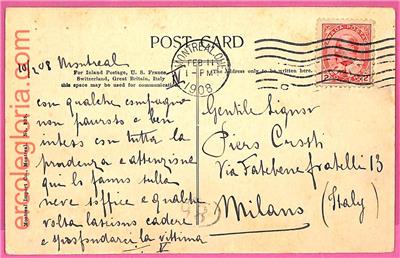 POST CARD
MONTREAL, QUE.
FEB 11
1 - PM
1908
10/2/08 Montreal
For Inland Postage, U. S. France,
Switzerland, Great Britain, Italy
this space may be used for communication
The Address only to be written here.
con qualche compagno
non pauroso e ben
inteso con tutta la
prudenza e attenzione
qui lo fanno sulla
neve soffice e qualche
volta lasciano cadere
e la vittima
Gentile Signor
Piero
Via Fatebenefratelli 13
Milano (Italy)
ercolegloria.com